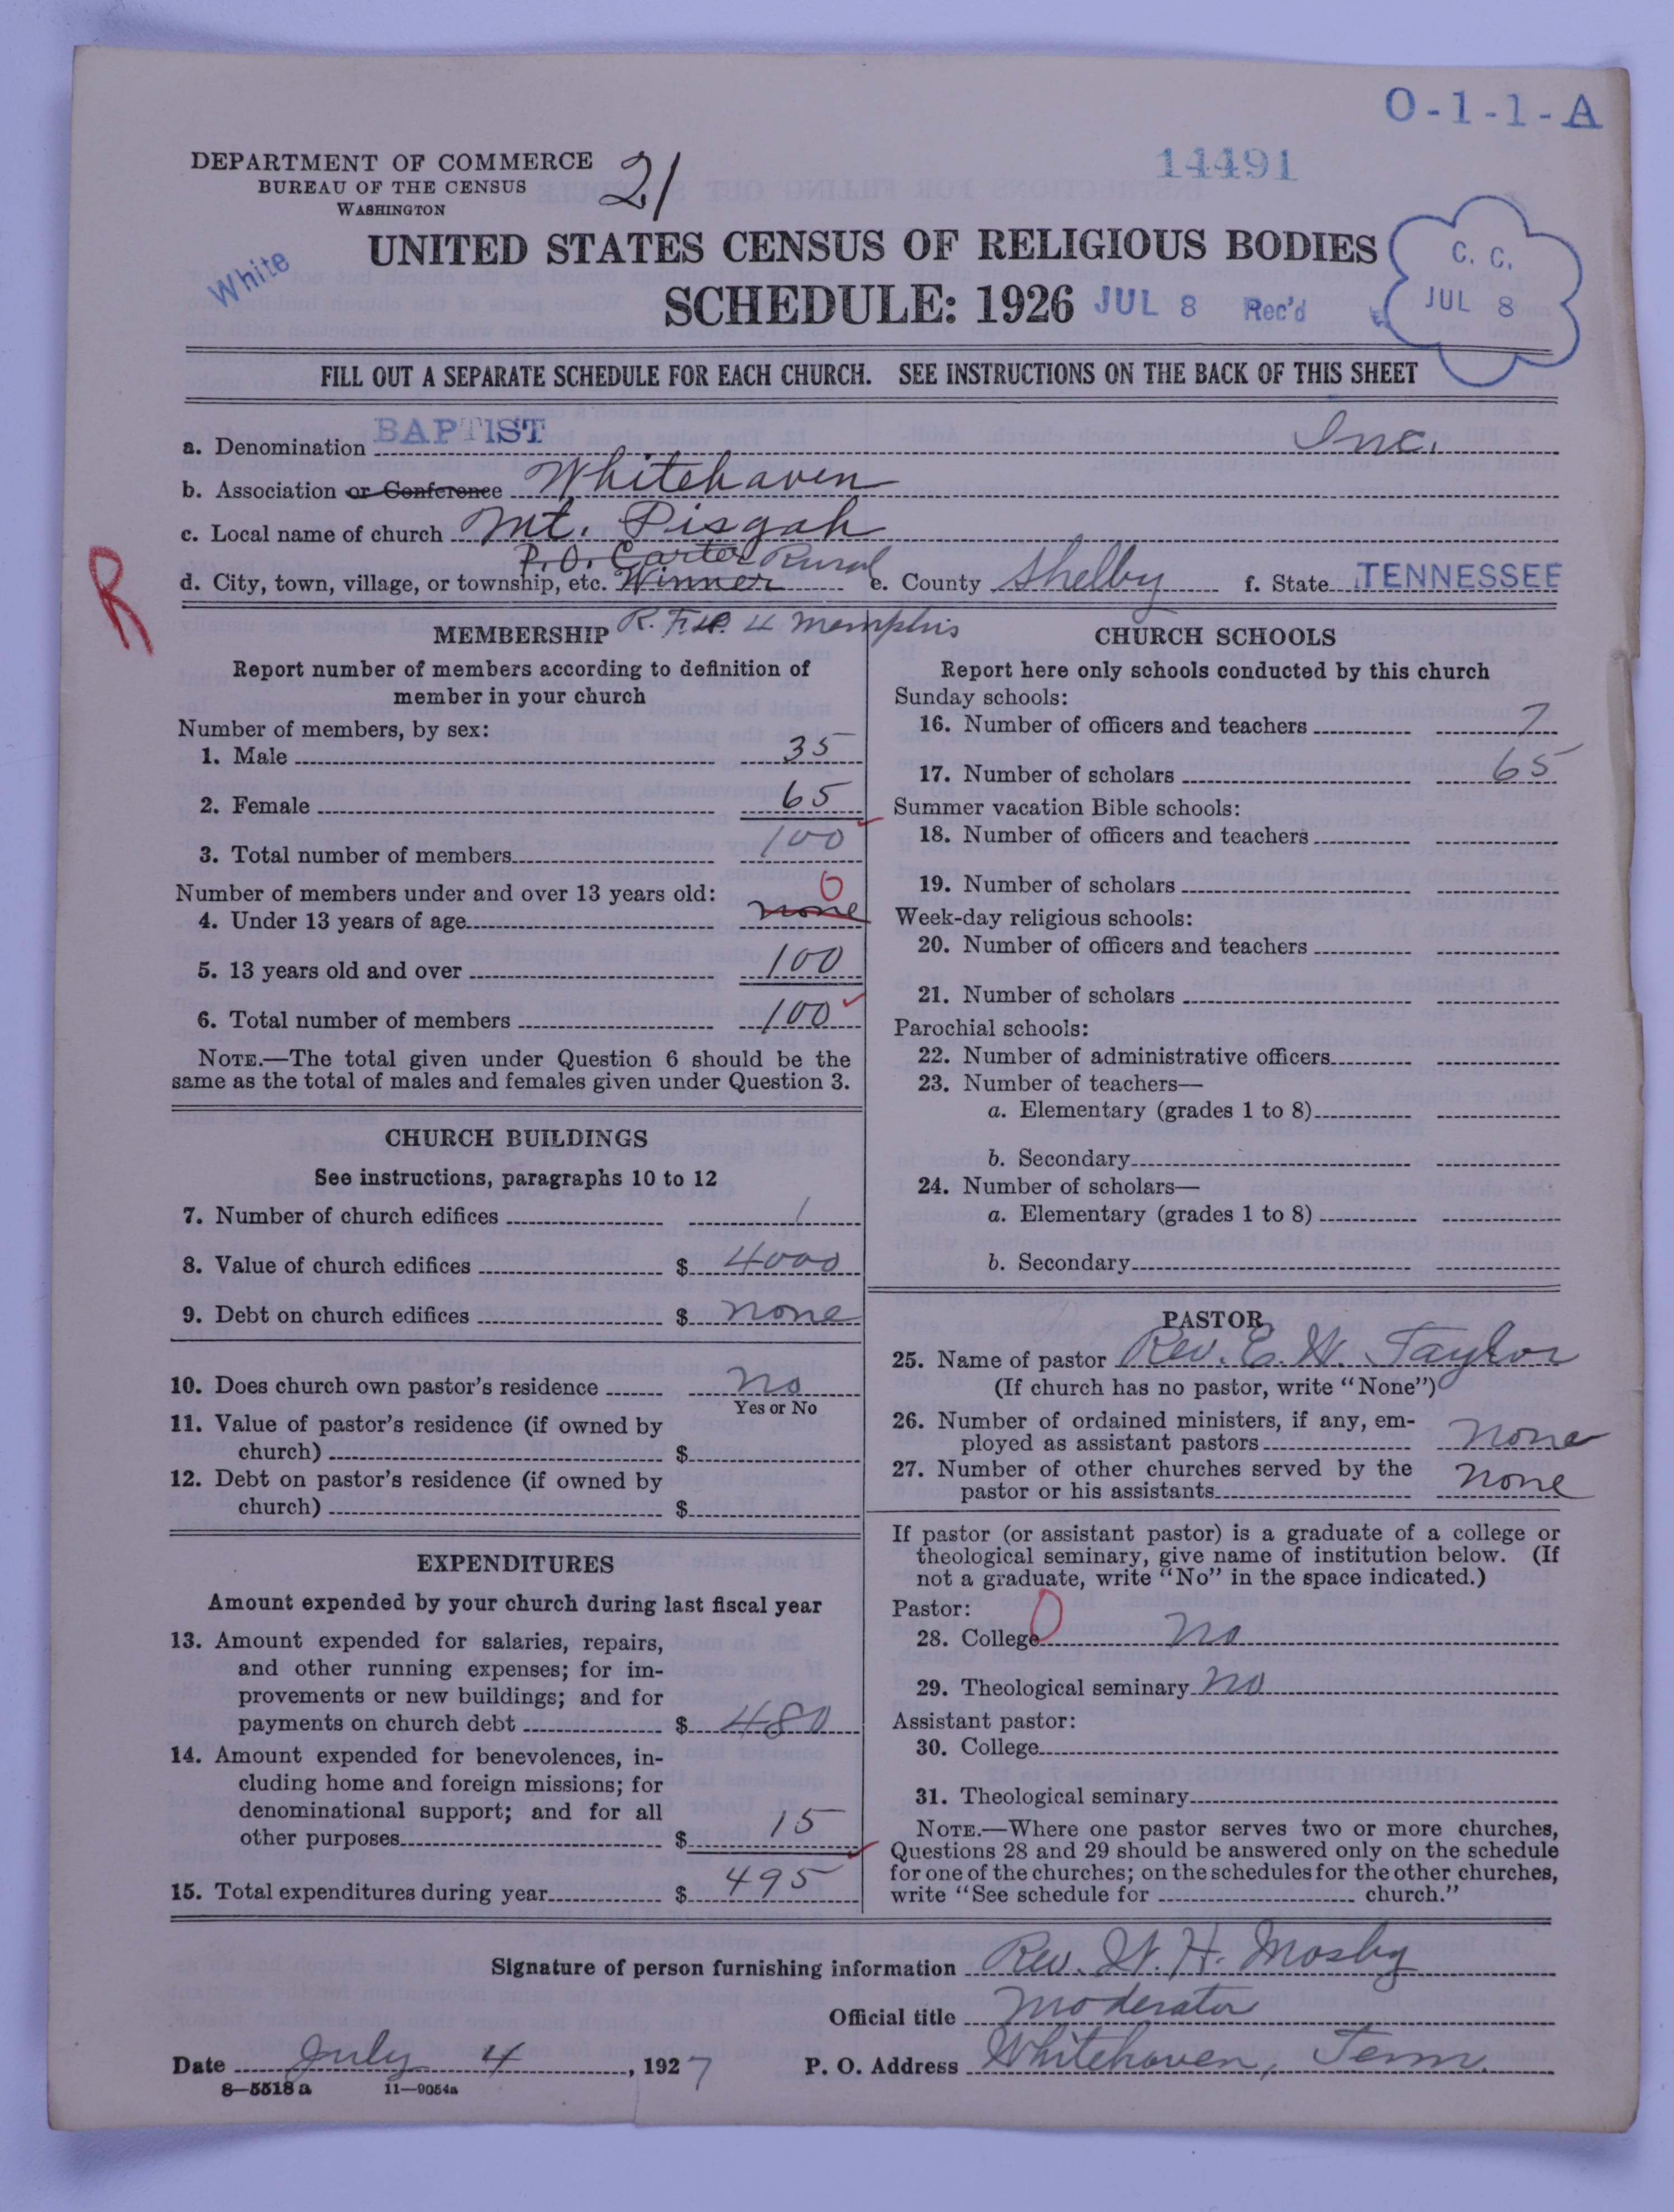 O-1-1-A
DEPARTMENT OF COMMERCE
BUREAU OF THE CENSUS
WASHINGTON
21
14491
UNITED STATES CENSUS OF RELIGIOUS BODIES
SCHEDULE: 1926
White
JUL 8 Rec'd
C. C.
JUL 8
FILL OUT A SEPARATE SCHEDULE FOR EACH CHURCH. SEE INSTRUCTIONS ON THE BACK OF THIS SHEET
a. Denomination BAPTIST Inc.
b. Association or Conference Whitehaven
c. Local name of church Mt. Pisgah
P.O. Carter Rural
d. City, town, village, or township, etc. Winner e. County Shelby f. State TENNESSEE
R
R.F.D. 4 Memphis
MEMBERSHIP
Report number of members according to definition of
member in your church
Number of members, by sex:
1. Male 35
2. Female 65
3. Total number of members 100
Number of members under and over 13 years old: 0
4. Under 13 years of age none
5. 13 years old and over 100
6. Total number of members 100
NOTE.—The total given under Question 6 should be the
same as the total of males and females given under Question 3.
CHURCH BUILDINGS
See instructions, paragraphs 10 to 12
7. Number of church edifices 1
8. Value of church edifices $ 4000
9. Debt on church edifices $ none
10. Does church own pastor's residence no
Yes or No
11. Value of pastor's residence (if owned by
church) $
12. Debt on pastor's residence (if owned by
church) $
EXPENDITURES
Amount expended by your church during last fiscal year
13. Amount expended for salaries, repairs,
and other running expenses; for im-
provements or new buildings; and for
payments on church debt $ 480
14. Amount expended for benevolences, in-
cluding home and foreign missions; for
denominational support; and for all
other purposes $ 15
15. Total expenditures during year $ 495
CHURCH SCHOOLS
Report here only schools conducted by this church
Sunday schools:
16. Number of officers and teachers 7
17. Number of scholars 65
Summer vacation Bible schools:
18. Number of officers and teachers
19. Number of scholars
Week-day religious schools:
20. Number of officers and teachers
21. Number of scholars
Parochial schools:
22. Number of administrative officers
23. Number of teachers—
a. Elementary (grades 1 to 8)
b. Secondary
24. Number of scholars—
a. Elementary (grades 1 to 8)
b. Secondary
PASTOR
25. Name of pastor Rev. E. W. Taylor
(If church has no pastor, write "None")
26. Number of ordained ministers, if any, em-
ployed as assistant pastors none
27. Number of other churches served by the
pastor or his assistants none
If pastor (or assistant pastor) is a graduate of a college or
theological seminary, give name of institution below. (If
not a graduate, write "No" in the space indicated.)
Pastor: 0
28. College no
29. Theological seminary no
Assistant pastor:
30. College
31. Theological seminary
NOTE.—Where one pastor serves two or more churches,
Questions 28 and 29 should be answered only on the schedule
for one of the churches; on the schedules for the other churches,
write "See schedule for church."
Signature of person furnishing information Rev. W. H. Mosby
Official title Moderator
Date July 4, 1927 P. O. Address Whitehaven, Tenn.
8—5518 a 11—9054a